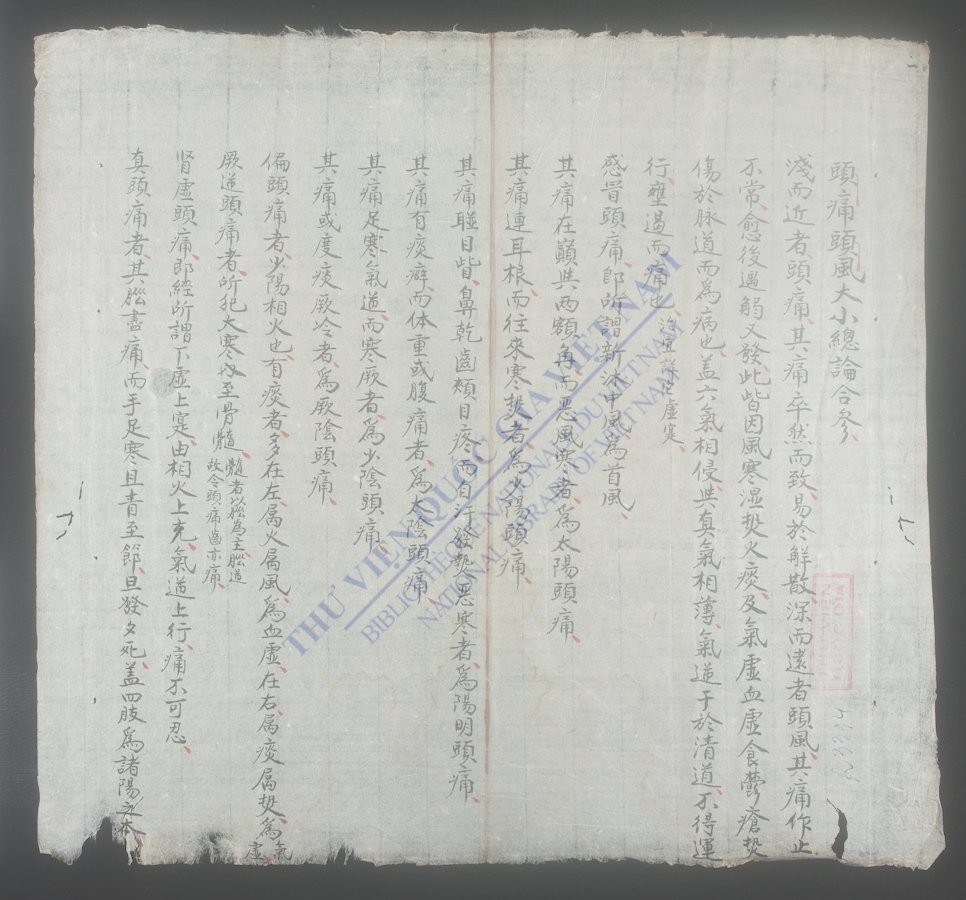 頭痛頭風大小總論合參
淺而近者頭痛其痛卒然而致易於解散深而遠者頭風其痛作止
不常愈後遇觸又發此皆因風寒湿𤍠火痰及氣虛血虛食鬱瘡𤍠
傷於脉道而為病也盖六氣相侵與真氣相薄氣道于於清道不得運
行壅遏而痛也 治宜詳定虛寔
感冒頭痛即所謂新沐中風為首風
其痛在巔與兩額角而恶風寒者為太陽頭痛
其痛連耳根而往來寒𤍠者為少陽頭痛
其痛眦目皆鼻乾齒頰目疼而自汗發𤍠恶寒者為陽明頭痛
其痛有痰癖而体重或腹痛者為太陰頭痛
其痛足寒氣逆而寒厥者為少陰頭痛
其痛或度痰厥冷者為厥陰頭痛
偏頭痛者少陽相火也有痰者多在左属火属風為血虛在右属痰属𤍠為氣虛
厥逆頭痛者所犯大寒内至骨髓 髓者以腦為主腦逆故令頭痛齒亦痛
肾虛頭痛即經所謂下虛上寔由相火上充氣逆上行痛不可忍
真頭痛者其腦盡痛而手足寒且青至節旦發夕死盖四肢為諸陽之本
THƯ VIỆN QUỐC GIA VIỆT NAM
BIBLIOTHÈQUE NATIONALE DU VIETNAM
NATIONAL LIBRARY OF VIETNAM